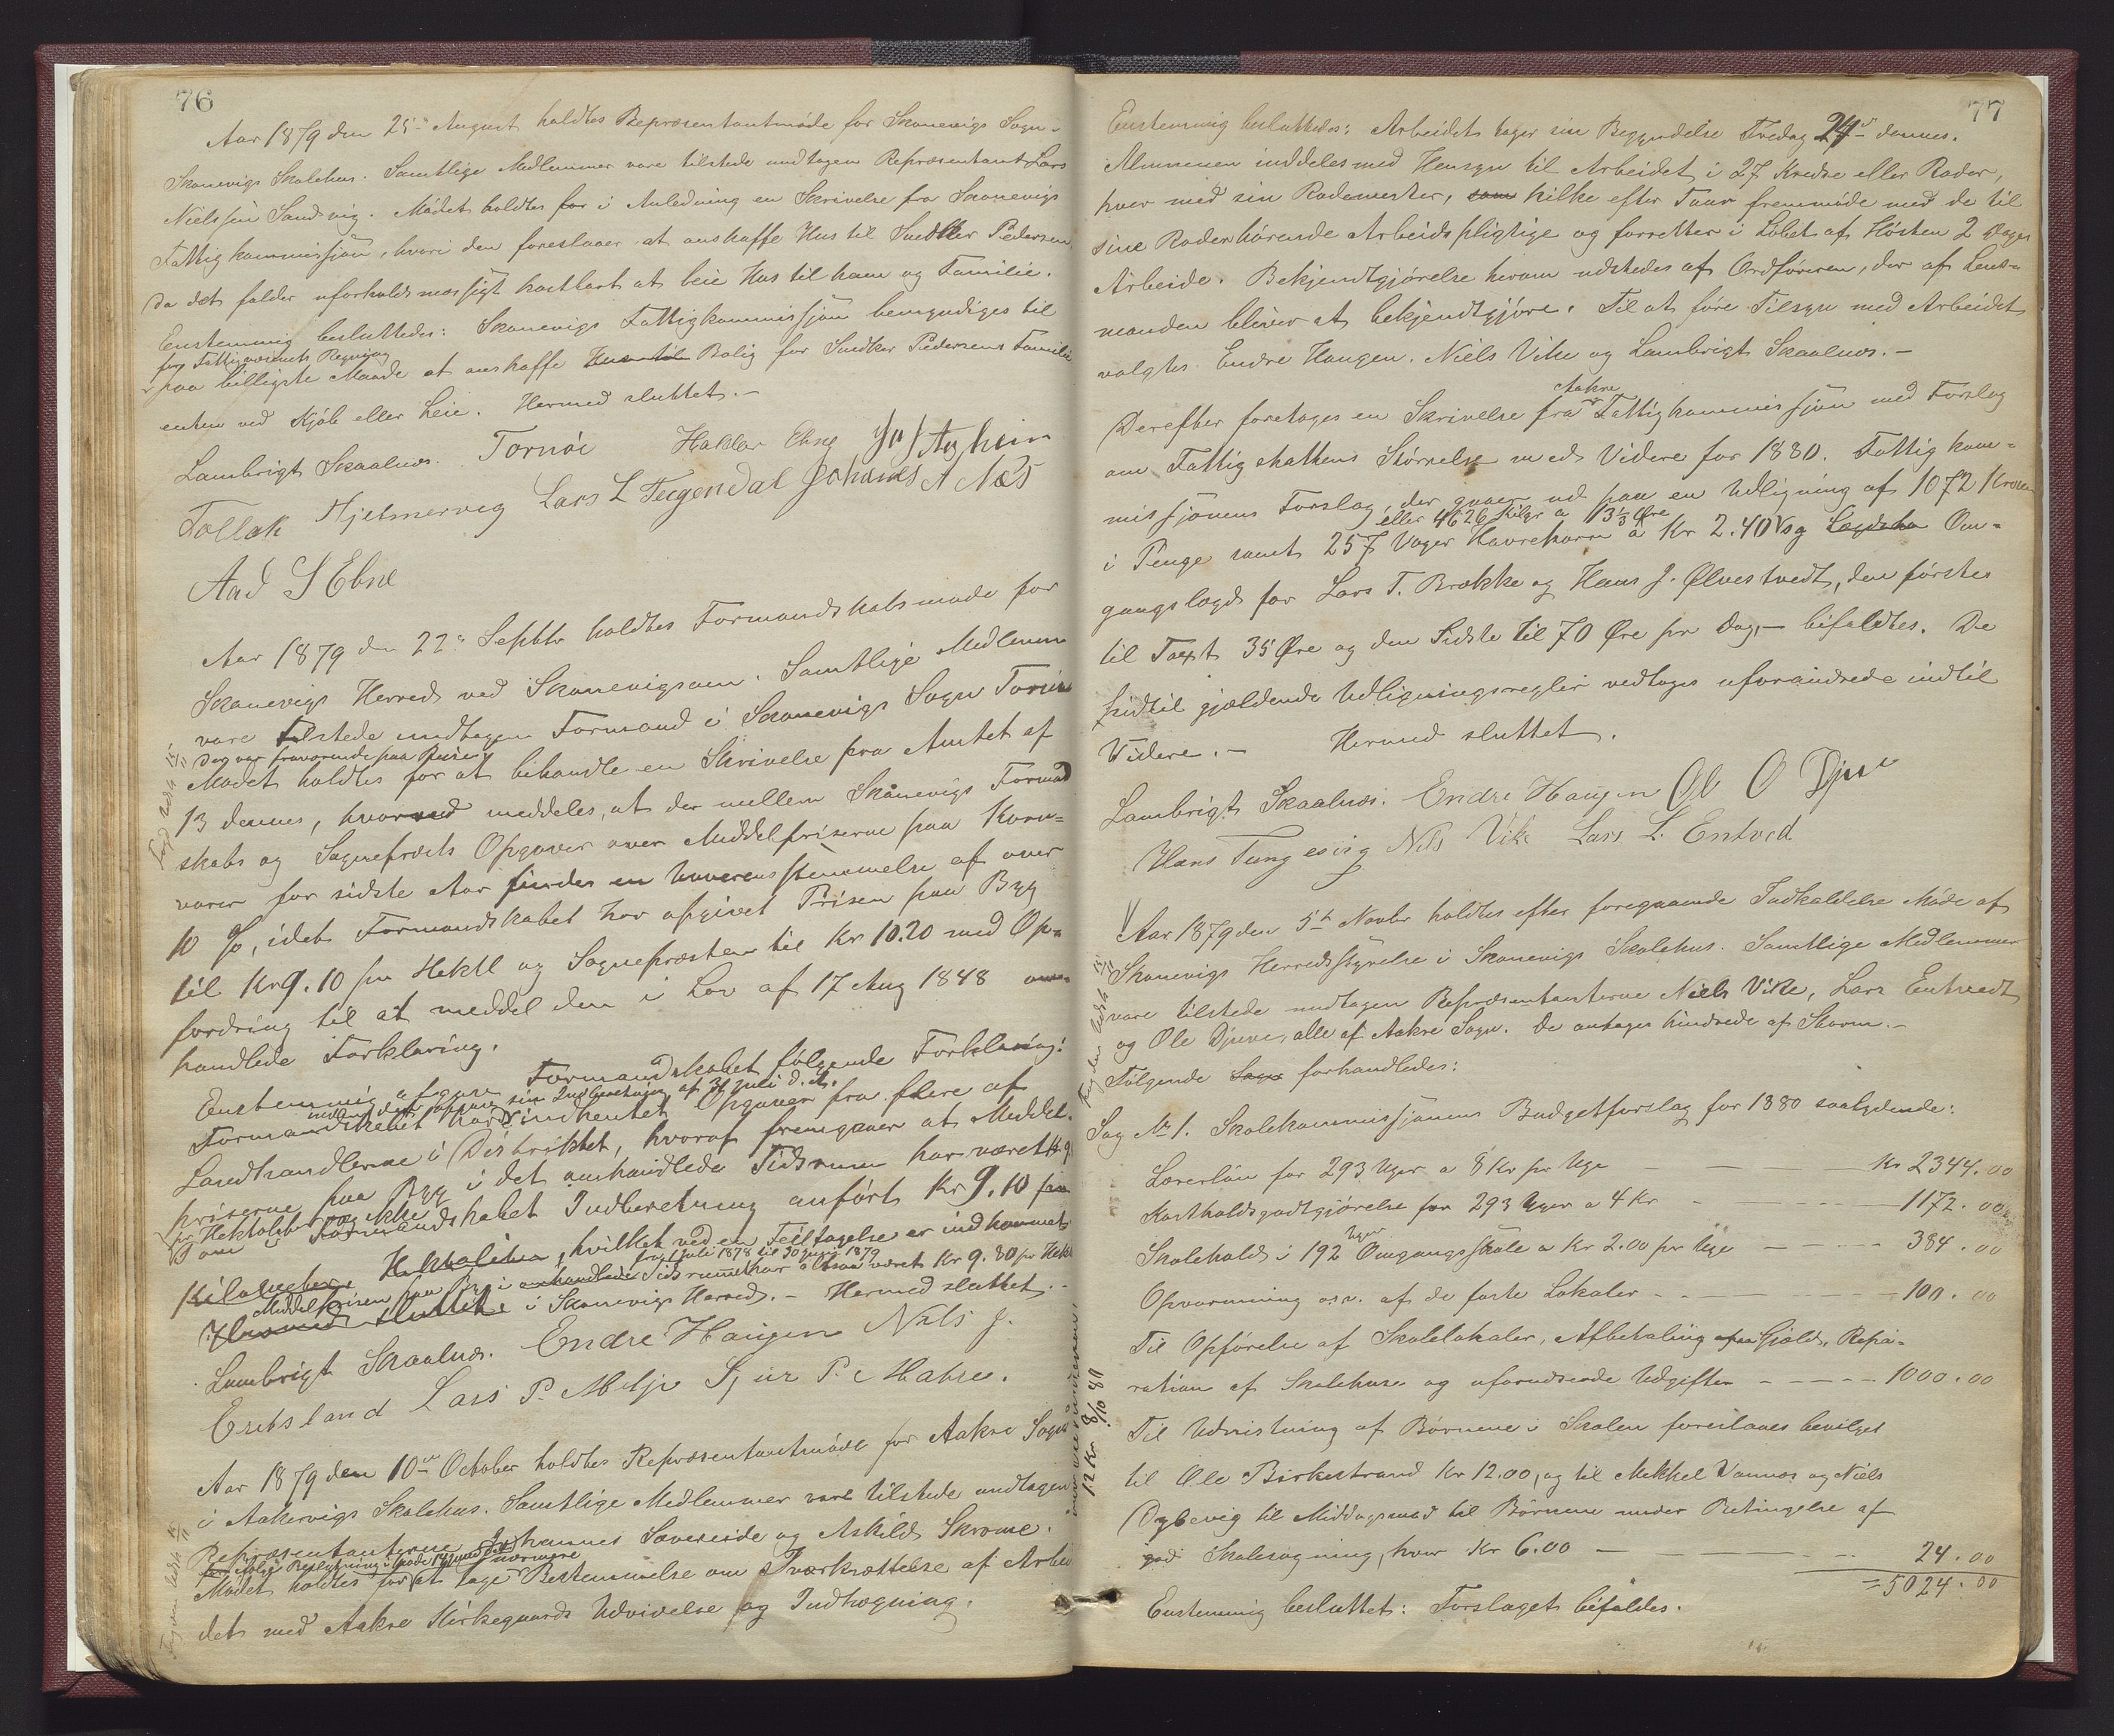 76
Aar 1879 den 25de August holdtes Repræsentantmøde for Skonevigs Sogn i
Skonevigs Skolehus. Samtlige Medlemmer vare tilstede undtagen Repræsentant Lars
Nielssen Sandvig. Mødet holdtes for i Anledning en Skrivelse fra Skonevigs
Fattigkommissjon, hvori den foreslaaer at anskaffe Hus til Snedker Pedersen
da det falder uforholdsmæssigt kostbart at leie Hus til ham og Familie.
Enstemmig besluttedes: Skonevigs Fattigkommissjon bemyndiges til
for Fattigvæsenets Regning
paa billigste Maade at anskaffe Hus til Bolig for Snedker Pedersens Familie
enten ved Kjøb eller Leie. Hermed sluttet.-
Lambrigt Skaalnes. Tornøe Haldor Ebne
Tollak Hjelmervig Lars L Teigendal Johannes A Næs
Aad S Ebne
Aar 1879 den 22de Septbr holdtes Formandskabsmøde for
Skonevigs Herred ved Skonevigsøen. Samtlige Medlemm
vare tilstede undtagen Formand i Skonevigs Sogn Tornøe
Der var fraværende paa Reise
Mødet holdtes for at behandle en Skrivelse fra Amtet af
13 dennes, hvorved meddeles, at der mellem Skånevigs Formand
skabs og Sogneprests Opgaver over Middelpriserne paa Korn-
varer for sidste Aar findes en Uoverensstemmelse af over
10 %, idet Formandskabet har opgivet Prisen paa Byg
til Kr 9.10 pr Hektl og Sognepresten til Kr 10.20 med Op-
fordring til at meddel den i Lov af 17 Aug 1848 om-
handlede Forklaring.
Enstemmig afgaves Formandskabet følgende Forklaring:
inden det afgav sin Indberetning af 31 Juli d. A.
Formandskabet havde indhentet Opgaver fra flere af
Landhandlerne i Distriktet, hvoraf fremgaaer at Middel-
priserne paa Byg i det omhandlede Tidsrum har været Kr 9
pr Hektoliter og ikke
som i Formandskabet Indberetning anført Kr 9.10 pr
Hektoliter, hvilket ved en Feiltagelse er indkommet
fra 1 Juli 1878 til 30 Juni 1879
Middelprisen paa Byg i omhandlede Tidsrum har altsaa været Kr 9.80 pr Hekt
Hermed sluttet i Skonevigs Herred.- Hermed sluttet.-
Lambrigt Skaalnes. Endre Haugen Nils J.
Eritsland Lars P. Milje Sjur P. Matre.
Aar 1879 den 10de October holdtes Repræsentantmøde for Aakre Sogn
i Aakervigs Skolehus. Samtlige Medlemmer vare tilstede undtagen
Repræsentanterne Johannes Sævereide og Askild Skrome.
Mødet holdtes for at tage nærmere Bestemmelse om Iværksættelse af Arbei
det med Aakre Kirkegaards Udvidelse og Indhegning.
77
Enstemmig besluttedes: Arbeidet tager sin Begyndelse Fredag 24de dennes.
Almuen inddeles med Hensyn til Arbeidet i 27 Kredse eller Roder,
hver med sin Rodemester, som hilke efter Tour fremmøde med de til
sine Roder hørende Arbeidspligtige og forretter i Løbet af Høsten 2 Dages
Arbeide. Bekjendtgjørelse herom udstedes af Ordføreren, der af Lens-
manden bliver at bekjendtgjøre. Til at føre Tilsyn med Arbeidet
valgtes Endre Haugen. Niels Vike og Lambrigt Skaalnes.-
Aakre
Derefter foretoges en Skrivelse fra Fattigkommissjon med Forslag
om Fattigskattens Størrelse med Videre for 1880. Fattigkom-
missjonens Forslag, der gaaer ud paa en Udligning af 1072 Kroner
eller 4626 Kilgr a 13 1/3 Øre
i Penge samt 257 Voger Havrekorn a Kr 2.40 og Lægdsho Om-
gangslægd for Lars T. Brække og Hans J. Ølvestvedt, den første
til Taxt 35 Øre og den Sidste til 70 Øre pr Dag,- bifaldtes. De
hidtil gjældende Udligningsregler vedtoges uforandrede indtil
Videre.- Hermed sluttet.
Lambrigt Skaalnes. Endre Haugen Ole O Djuve
Hans Tungesvig Nils Vike Lars L. Entved
Aar 1879 den 5te Novbr holdtes efter foregaaende Indkaldelse Møde af
Skonevigs Herredsstyrelse i Skonevigs Skolehus. Samtlige Medlemmer
vare tilstede undtagen Repræsentanterne Niels Vike, Lars Entvedt
og Ole Djuve, alle af Aakre Sogn. De antages hindrede af Storm.-
Følgende Sager forhandledes:
Sag No 1. Skolekommissjonens Budgetforslag for 1880 saalydende:
Lærerløn for 293 Uger a 8 Kr pr Uge - Kr 2344.00
Kostholdsgodtgjørelse for 293 Uger a 4 Kr - 1172.00
Skolehold i 192 Uger Omgangsskole a Kr 2.00 pr Uge - 384.00
Opvarmning osv. af de faste Lokaler - 100.00
Til Opførelse af Skolelokaler, Afbetaling paa Gjæld, Repa-
ration af Skolehuse og uforudseede Udgifter - 1000.00
Til Udvistning af Børnene i Skolen foreslaaes bevilget
til Ole Birkestrand Kr 12.00, og til Mikkel Vannes og Niels
Dybevig til Middagsmad til Børnene under Betingelse af
god Skolesøgning, hver Kr 6.00 - 24.00
= 5024.00
Enstemmig besluttet: Forslaget bifaldes.
12 Kr 8/10 80